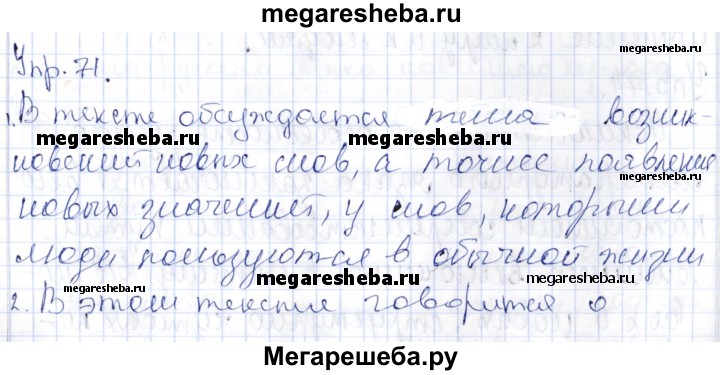 megaresheba.ru
megaresheba.ru
Упр. 71.
megaresheba.ru
1. В тексте обсуждается тема возник-
megaresheba.ru megaresheba.ru
новений новых слов, а точнее появление
megaresheba.ru
новых значений, у слов, которыми
люди пользуются в обычной жизни
megaresheba.ru megaresheba.ru
2. В этом тексте говорится о
Мегарешеба.ру